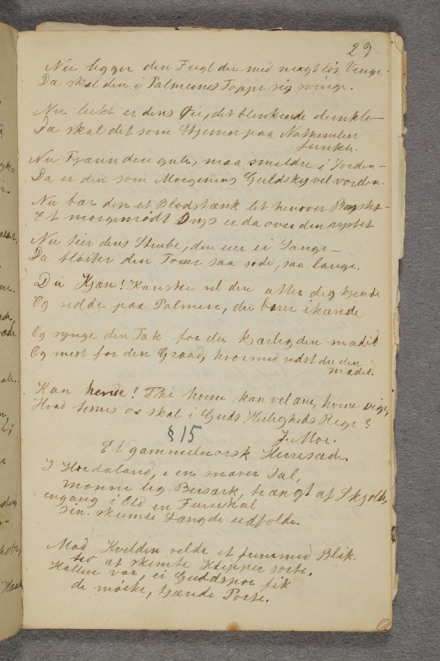 29
Nu ligger den Fugl der med magtløs Vinge.
Da skal den i Palmernes Toppe sig svinge.
Nu lukt er dens Øie, det blinkende dunkle
Da skal det som Stjerner paa Nathimlen
funkle.
Nu Fjæren den gule, maa smuldre i Jorden
Da er den som Morgenens Guldsky vel vorden.
Nu bær den et Blodstænk let henover Brystet
Et morgenrødt er da over den
Nu tier dens Strube, den ei Sange
Da fløiter den Toner saa søde, saa lange.
Du Kjær! Kanske vil den atter dig kjende
Og sidde paa Palmen, du bærer ihænde
Og synge den Tak for du kjærlig den
Og mest for den Graad, hvormed
Kan hende! Thi hvem kan vel hvem sige,
Hvad times os skal i Guds Herligheds Rige?
J. Moe.
§ 15
Et gammelnorsk Herresæde.
I Hordaland, i en snæver Dal,
monne lig Bersærk, trængt af Skjolde,
engang i Old en Furuhal
sin skumle Længde udfolde.
Mod Kvelden velde et Blik
af skumle Klepper sorte.
Hallen var, ei Guddspor fik
de mørke, tjærede Porte.